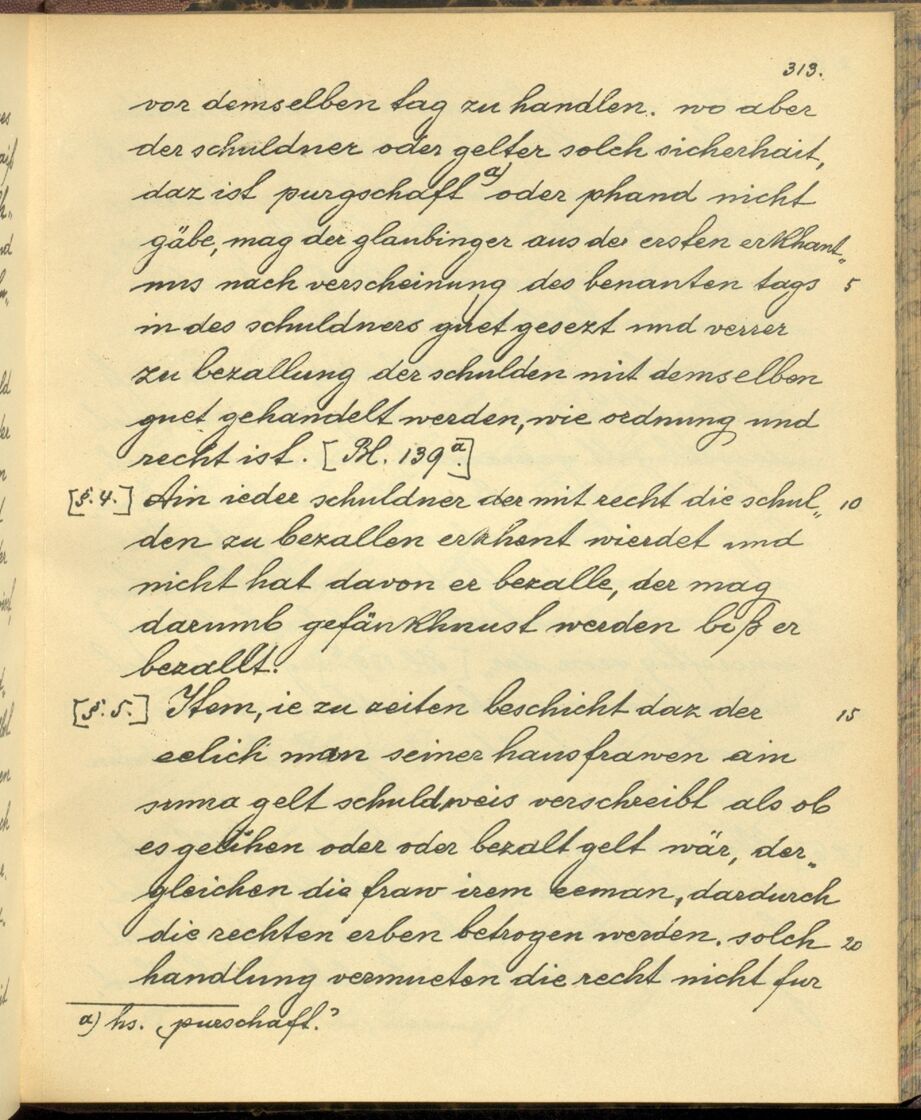 313.
vor demselben tag zu handlen. wo aber
der schuldner oder gelter solch sicherhait,
daz ist purgschaft a) oder phand nicht
gäbe, mag der glaubinger aus der ersten erkhant„
nus nach verscheinung des benanten tags 5
in des schuldners guet gesezt und verrer
zu bezallung der schulden mit demselben
guet gehandelt werden, wie ordnung und
recht ist. [Bl. 139 a.]
[§. 4.] Ain ieder schuldner der mit recht die schul„ 10
den zu bezallen erkhent wierdet und
nicht hat davon er bezalle, der mag
darumb gefänkhnust werden biß er
bezallt.
[§. 5.] Item, ie zu zeiten beschicht daz der 15
eelich man seiner hausfrawen ain
suma gelt schuldweis verschreibt als ob
es gelihen oder oder bezalt gelt wär, der„
gleichen die fraw irem eeman, dardurch
die rechten erben betrogen werden. solch 20
handlung vermueten die recht nicht fur
a) hs. ‚purschaft.‘